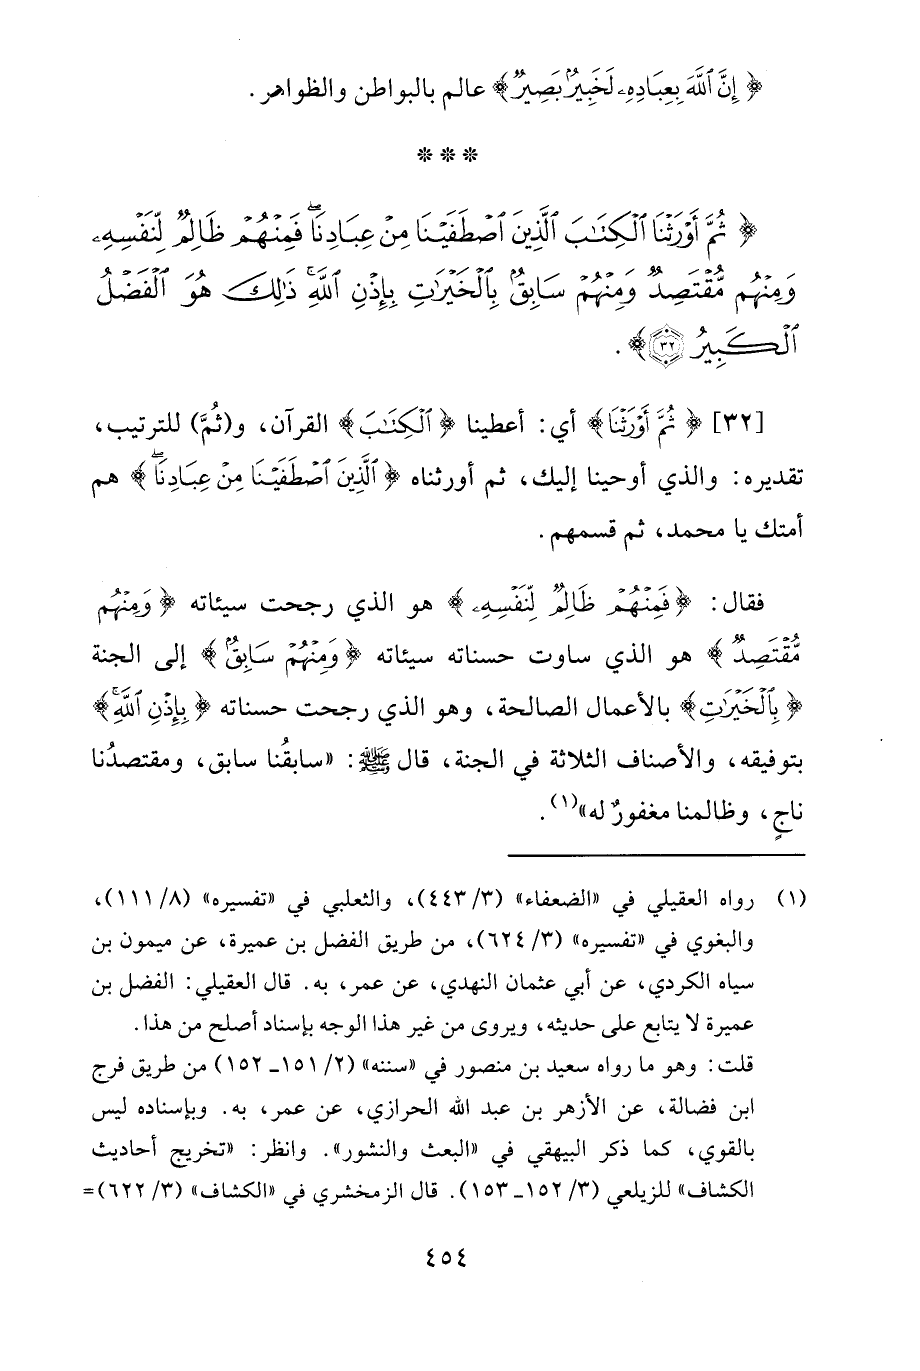 ﴿ إِنَّ ٱللَّهَ بِعِبَادِهِۦ لَخَبِيرٌۢ بَصِيرٌ ﴾ عالم بالبواطن والظواهر .
* * *
﴿ ثُمَّ أَوْرَثْنَا ٱلْكِتَٰبَ ٱلَّذِينَ ٱصْطَفَيْنَا مِنْ عِبَادِنَاۖ فَمِنْهُمْ ظَالِمٌ لِّنَفْسِهِۦ
وَمِنْهُم مُّقْتَصِدٌ وَمِنْهُمْ سَابِقٌۢ بِٱلْخَيْرَٰتِ بِإِذْنِ ٱللَّهِۚ ذَٰلِكَ هُوَ ٱلْفَضْلُ
ٱلْكَبِيرُ ٣٢ ﴾ .
[٣٢] ﴿ ثُمَّ أَوْرَثْنَا ﴾ أي : أعطينا ﴿ ٱلْكِتَٰبَ ﴾ القرآن، و(ثُمَّ) للترتيب،
تقديره: والذي أوحينا إليك، ثم أورثناه ﴿ ٱلَّذِينَ ٱصْطَفَيْنَا مِنْ عِبَادِنَاۖ ﴾ هم
أمتك يا محمد، ثم قسمهم .
فقال : ﴿ فَمِنْهُمْ ظَالِمٌ لِّنَفْسِهِۦ ﴾ هو الذي رجحت سيئاته ﴿ وَمِنْهُم
مُّقْتَصِدٌ ﴾ هو الذي ساوت حسناته سيئاته ﴿ وَمِنْهُمْ سَابِقٌۢ ﴾ إلى الجنة
﴿ بِٱلْخَيْرَٰتِ ﴾ بالأعمال الصالحة، وهو الذي رجحت حسناته ﴿ بِإِذْنِ ٱللَّهِۚ ﴾
بتوفيقه، والأصناف الثلاثة في الجنة، قال ﷺ: «سابقُنا سابق، ومقتصدُنا
ناجٍ، وظالمنا مغفورٌ له»(١) .
(١) رواه العقيلي في «الضعفاء» (٣/ ٤٤٣)، والثعلبي في «تفسيره» (٨/ ١١١)،
والبغوي في «تفسيره» (٣/ ٦٢٤)، من طريق الفضل بن عميرة، عن ميمون بن
سياه الكردي، عن أبي عثمان النهدي، عن عمر، به. قال العقيلي: الفضل بن
عميرة لا يتابع على حديثه، ويروى من غير هذا الوجه بإسناد أصلح من هذا.
قلت: وهو ما رواه سعيد بن منصور في «سننه» (٢/ ١٥١ـ ١٥٢) من طريق فرج
ابن فضالة، عن الأزهر بن عبد الله الحرازي، عن عمر، به. وبإسناده ليس
بالقوي، كما ذكر البيهقي في «البعث والنشور». وانظر: «تخريج أحاديث
الكشاف» للزيلعي (٣/ ١٥٢ـ ١٥٣). قال الزمخشري في «الكشاف» (٣/ ٦٢٢)=
٤٥٤